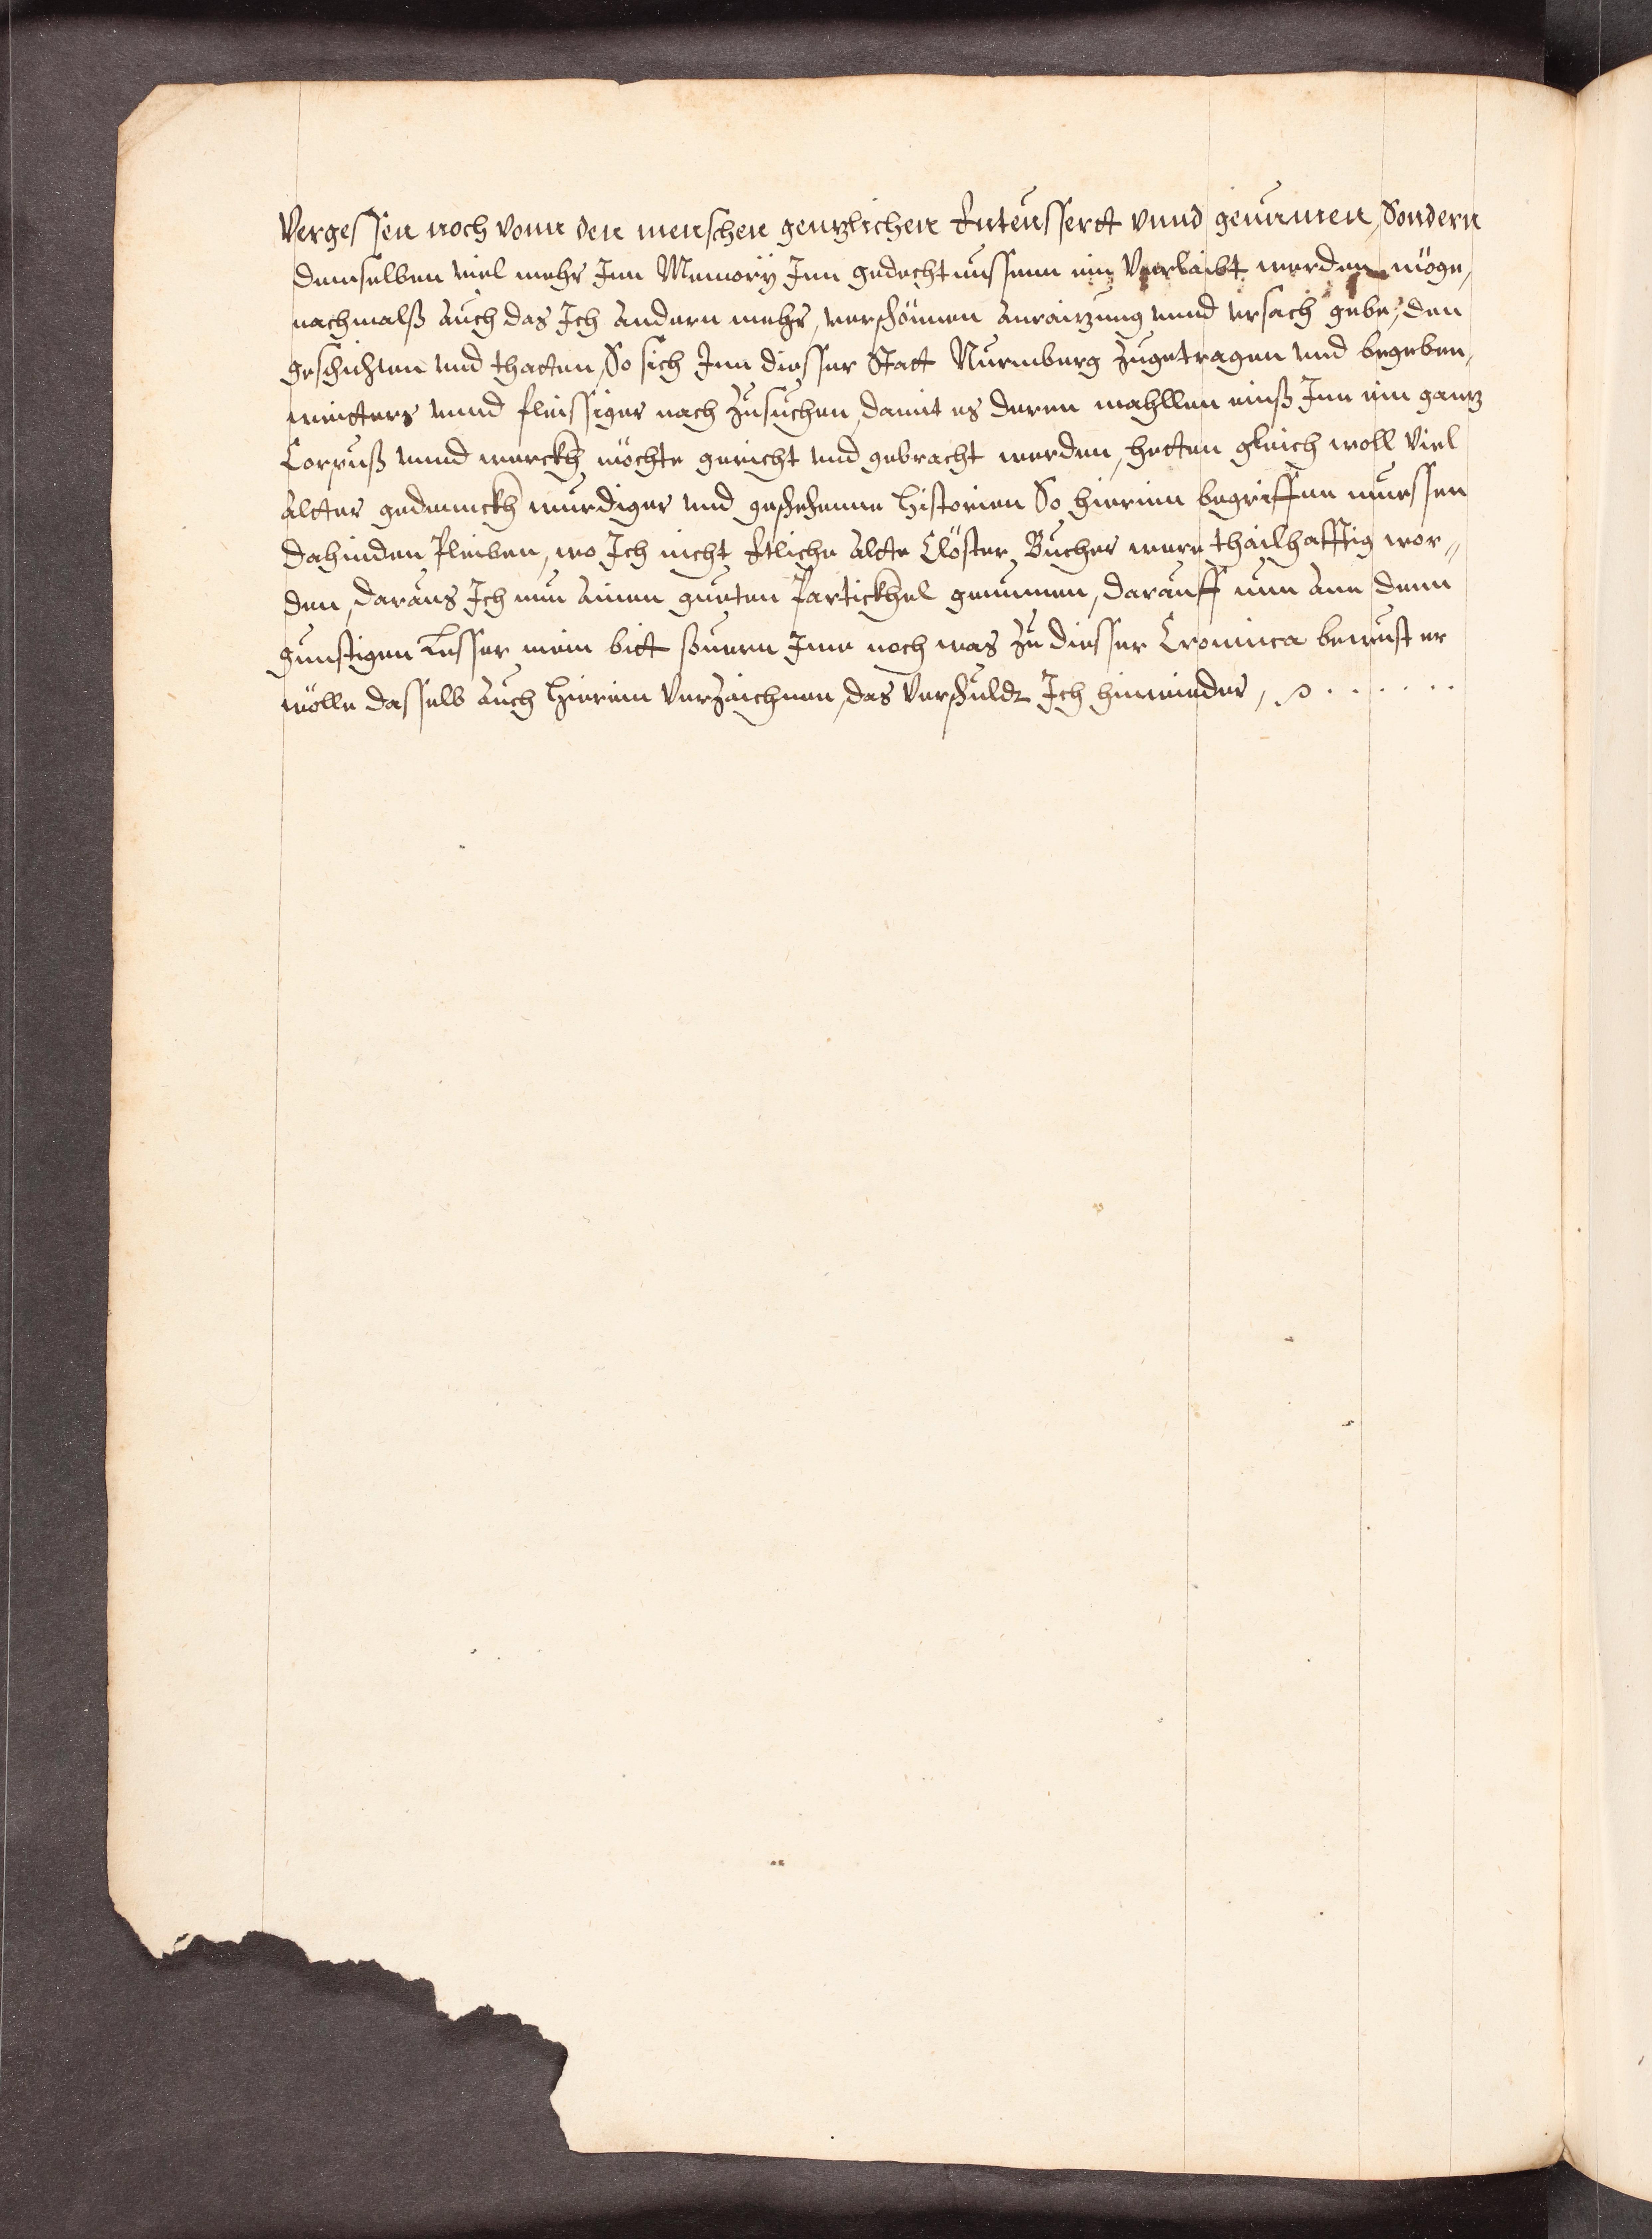 Vergessen noch vonn den menschen gentzlichen Enteussertt vnnd genummen, Sondern
demselben viel mehr Inn Memorÿ Inn gedechtnussenn ein Verleibt werden möge,
nachmalß auch das Ich andern mehr, verschönnen anraitzung vnnd vrsach gebe, den
geschichten vnd thatten, So sich Inn diesser Statt Nurmberg zugetragen vnd begeben,
weitters vnnd fleissiger nach zusuchen, damit es deren mahllen einß Inn ein gantz
Corpuß vnnd werckh möchte gericht vnd gebracht werden, hetten gleich woll Viel
altter gedennckh wurdiger vnd geschehenne Historien So hierinn begriffen muessen
dahinden Pleiben, wo Ich nicht Etliche altte Clöster Bucher were thailhafftig wor„
den, daraus Ich nun ainen gueten Partickhel genummen, darauff nun ann denn
gunstigen Lesser mein bitt souern Ime noch was zu diesser Cronnica bewust er
wölle dasselb auch hierinn Verzaichnen, das Verschuldt Ich hinwieder,